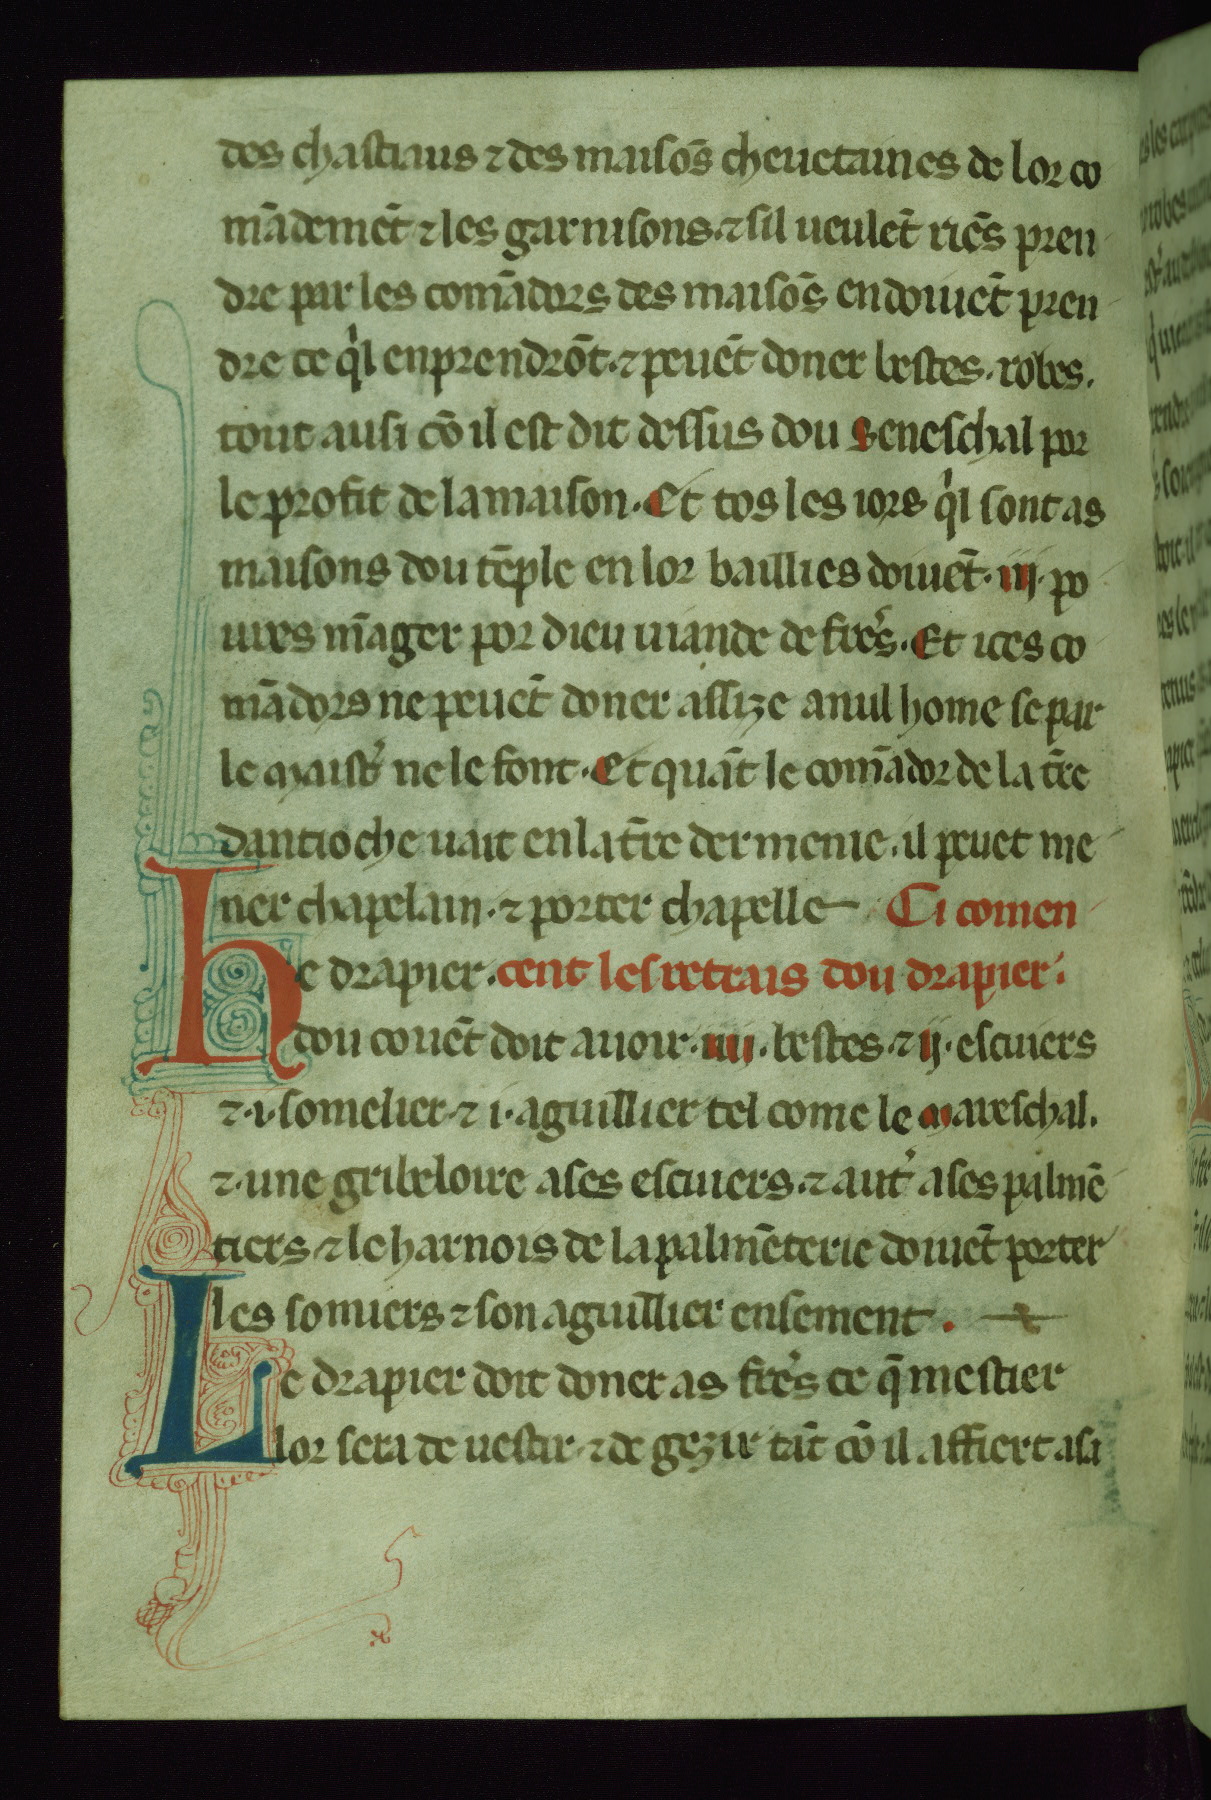 des chastiaus ⁊ des maisōs cheuetaines de lor co
mādemēt ⁊ les garnisons. ⁊ sil ueulēt riēs pren
dre par les comādors des maisōs en doiuēt pren
dre ce q'l en prendrōt. ⁊ peuēt doner bestes. robes.
tout ausi cō il est dit dessus dou seneschal por
le profit de la maison. Et tos les iors q'l sont as
maisons dou tēple en lor baillies doiuēt. iij. po
ures māger por dieu uiande de frēs. Et ices co
mādors ne peuēt doner assize a nul home se par
le maist' ne le font. Et quāt le comādor de la t̄re
dantioche uait en la t̄re dermenie. il peuet me
ner chapelain. ⁊ porter chapelle Ci comen
he drapier. cent les retrais dou drapier:
dou couēt doit auoir. iiij. bestes. ⁊ ij. escuiers
⁊. i. somelier. ⁊ i. aguillier tel come le mareschal.
⁊. une gribeloire a ses escuiers. ⁊ aut' a ses palmē
tiers. ⁊ le harnois de la palmēterie doiuēt porter
les somiers ⁊ son aguillier ensement.
Le drapier doit doner as frēs ce q̄ mestier
lor sera de uestir. ⁊ de gezir tāt cō il affiert a sa